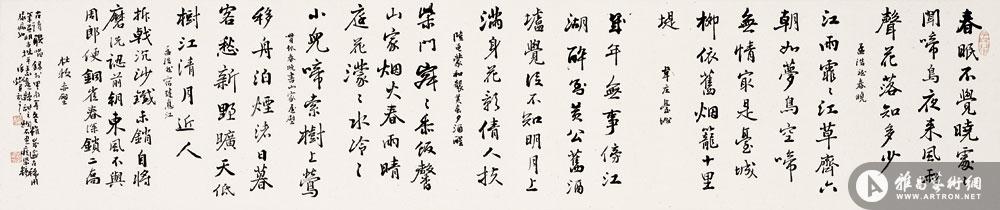 春眠不覺曉處〻
聞啼鳥夜来風雨
聲花落知多少
孟浩然春曉
江雨霏〻江草齊六
朝如夢鳥空啼
無情最是臺城
柳依舊烟籠十里
堤
韋庄臺城
幾年無事傍江
湖醉倒黃公舊酒
壚覺後不知明月上
滿身花影倩人扶
陸龜蒙和襲美春夕酒醒
柴門寂〻黍飯馨
山家烟火春雨晴
庭花濛〻水泠〻
小兒啼索樹上鶯
貫休春晚書山家屋壁
移舟泊煙渚日暮
客愁新野曠天低
樹江清月近人
孟浩然宿建德江
折戟沉沙鐵未銷自將
磨洗認前朝東風不與
周郎便銅雀春深鎖二喬
杜牧赤壁
雅昌藝術網
artron.net